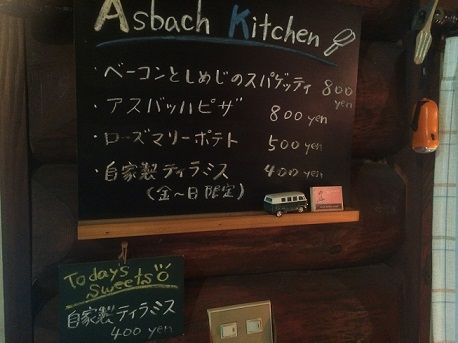 Asbach Kitchen
・ベーコンとしめじのスパゲッティ 800 yen
・アスバッハピザ 800 yen
・ローズマリーポテト 500 yen
・自家製ティラミス 400 yen
(金〜日限定)
Today's
Sweets
自家製ティラミス
400 yen